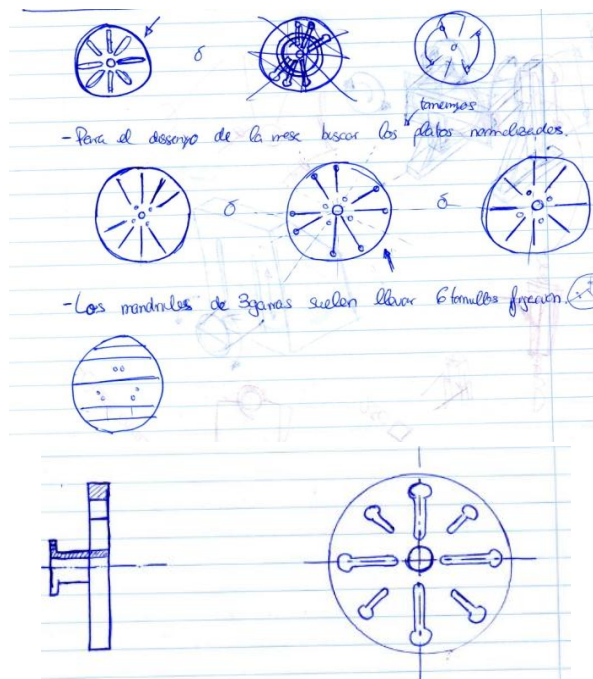 ó
- Para el dissenyo de la mesa buscar los platos normalizados.
ó ó
- Los mandriles de 3 garras suelen llevar 6 tornillos fijación.